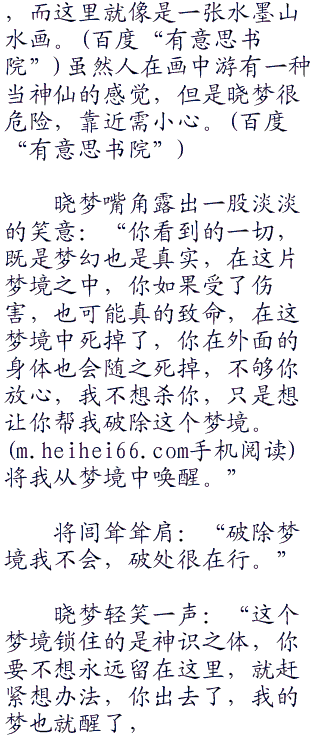 ，而这里就像是一张水墨山
水画。(百度“有意思书
院”)虽然人在画中游有一种
当神仙的感觉，但是晓梦很
危险，靠近需小心。(百度
“有意思书院”)
晓梦嘴角露出一股淡淡
的笑意：“你看到的一切，
既是梦幻也是真实，在这片
梦境之中，你如果受了伤
害，也可能真的致命，在这
梦境中死掉了，你在外面的
身体也会随之死掉，不够你
放心，我不想杀你，只是想
让你帮我破除这个梦境。
(m.heihei66.com手机阅读)
将我从梦境中唤醒。”
将闾耸耸肩：“破除梦
境我不会，破处很在行。”
晓梦轻笑一声：“这个
梦境锁住的是神识之体，你
要不想永远留在这里，就赶
紧想办法，你出去了，我的
梦也就醒了，